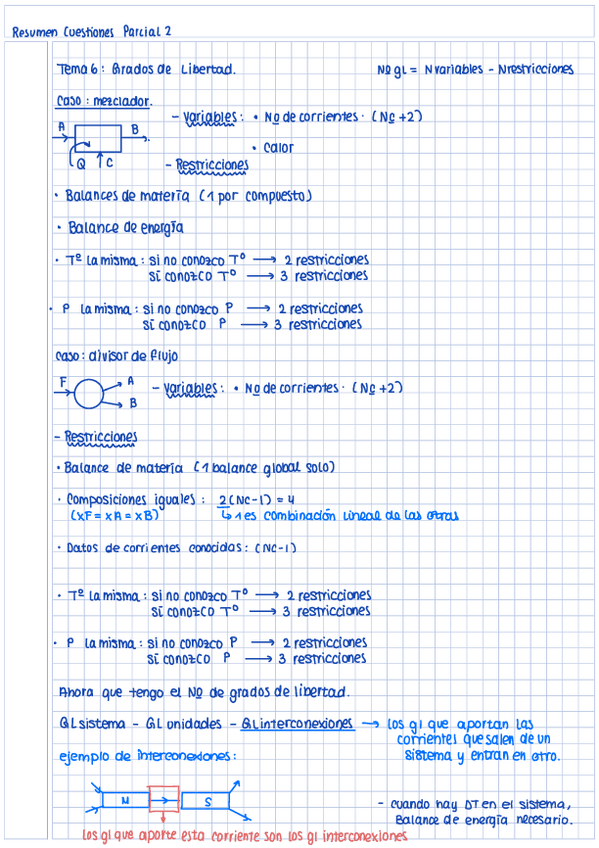 Resumen Cuestiones Parcial 2
Tema 6: Grados de Libertad. Nº gL = N variables - N restricciones
Caso: mezclador.
A B
Q C
- Variables: • Nº de corrientes · (Nc +2)
• Calor
- Restricciones
• Balances de materia (1 por compuesto)
• Balance de energía
• Tº la misma: si no conozco Tº → 2 restricciones
sí conozco Tº → 3 restricciones
• P la misma: si no conozco P → 2 restricciones
sí conozco P → 3 restricciones
caso: divisor de flujo
F A
B
- Variables: • Nº de corrientes · (Nc +2)
- Restricciones
• Balance de materia (1 balance global solo)
• Composiciones iguales: 2(Nc-1) = 4
(XF = XA = XB) ↳ 1 es combinación lineal de las otras
• Datos de corrientes conocidas: (Nc-1)
• Tº la misma: si no conozco Tº → 2 restricciones
sí conozco Tº → 3 restricciones
• P la misma: si no conozco P → 2 restricciones
sí conozco P → 3 restricciones
Ahora que tengo el Nº de grados de libertad.
GL sistema - GL unidades - GL interconexiones → los gl que aportan las
corrientes que salen de un
sistema y entran en otro.
ejemplo de interconexiones:
M S
- cuando hay ΔT en el sistema,
Balance de energía necesario.
los gl que aporte esta corriente son los gl interconexiones